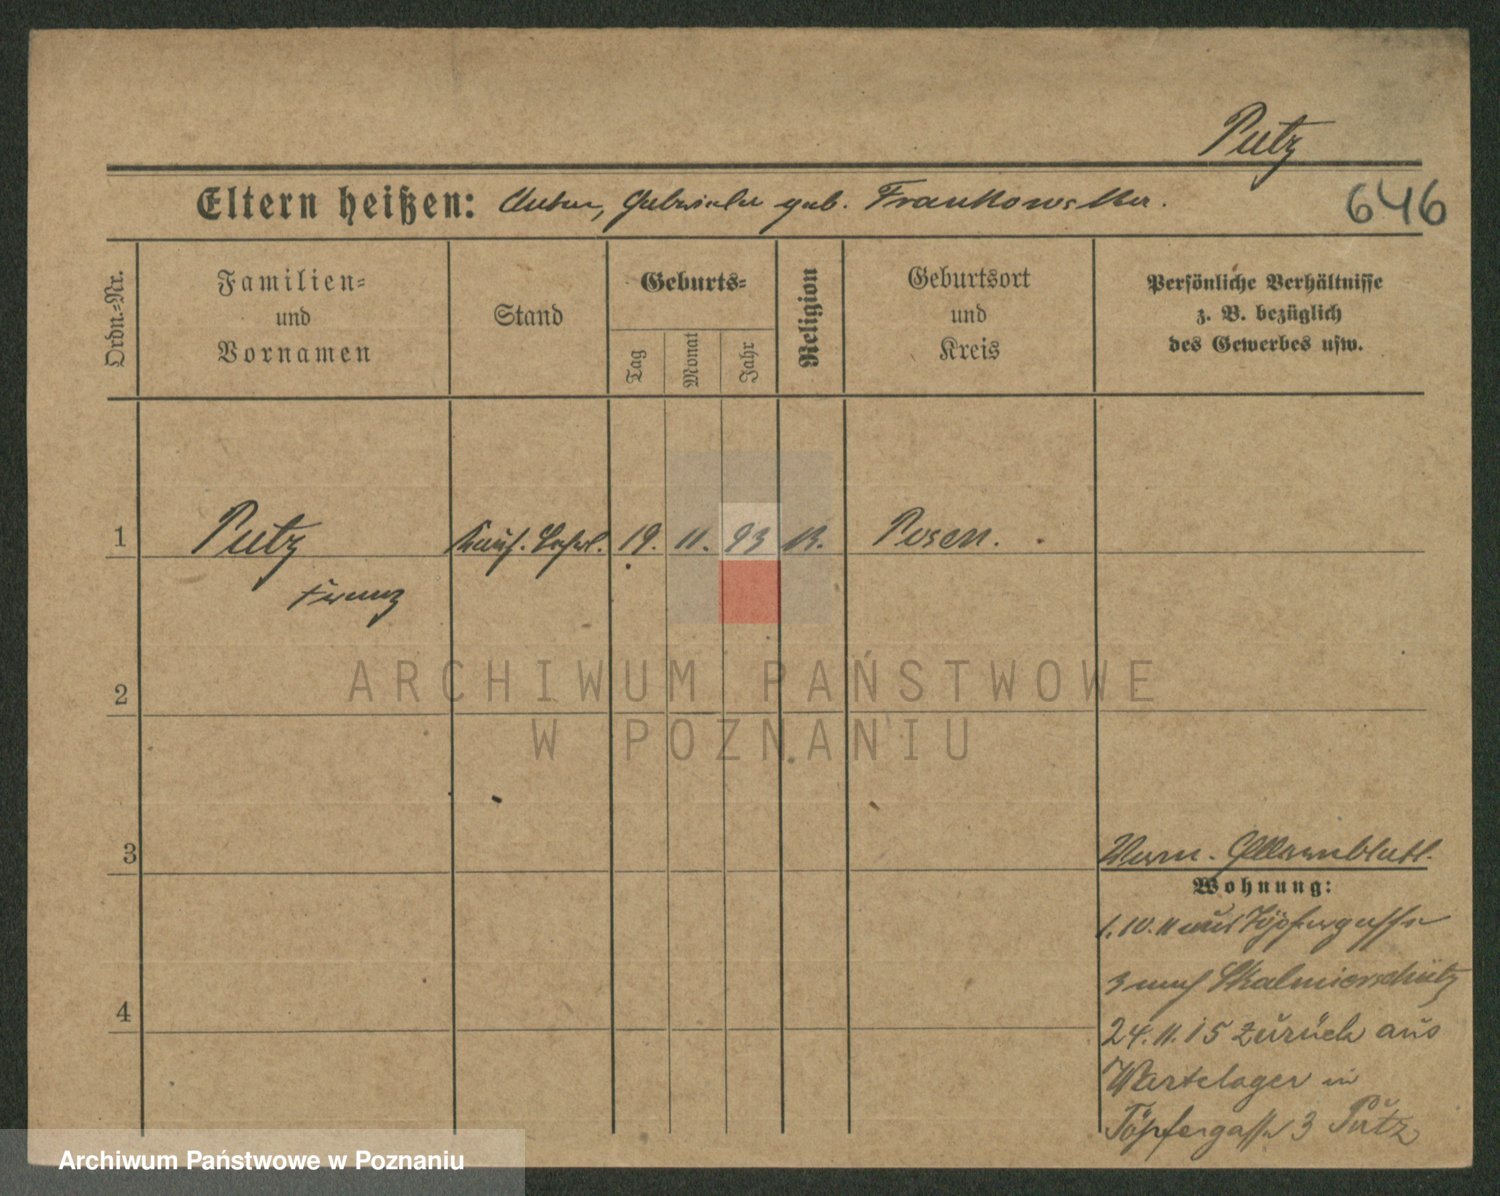 Putz
Eltern heißen: Anton, Gabriele geb. Frankowska.
646
Ordn.=Nr.
Familien=
und
Vornamen
Stand
Geburts=
Tag
Monat
Jahr
Religion
Geburtsort
und
Kreis
Persönliche Verhältnisse
z. B. bezüglich
des Gewerbes usw.
1 Putz Kauf. Lehrl. 19. 11. 93 Posen.
Franz
ARCHIWUM PAŃSTWOWE
W POZNANIU
2
3
Elternblatt.
Wohnung:
1.10.11 aus Töpfergasse
3 nach Skalmierschütz
4
24.11.15 zurück aus
Wartelager in
Töpfergasse 3 Putz
Archiwum Państwowe w Poznaniu